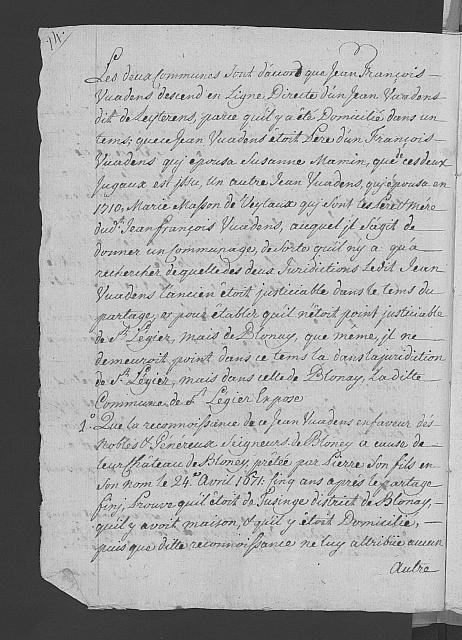 Les deux Communes sont d'accord que Jean François
Vuadens descend en Ligne Directe d'un Jean Vuadens
dit de Leyterens, parce qu'il y a été Domicilié dans un
tems; que ce Jean Vuadens étoit Pere d'un François
Vuadens qui épousa Susanne Mamin, que de ces deux
Jugaux est issu, un autre Jean Vuadens, qui épousa en
1710, Marie Masson de Veytaux qui sont les Pere & Mére
dud.t Jean François Vuadens, auquel il s'agit de
donner un Communage, de sorte qu'il n'y a qu'a
rechercher de quelle des deux Juriditions ledit Jean
Vuadens l'ancien étoit justiciable dans le tems du
partage, & pour établir qu'il n'étoit point justiciable
de S.t Légier, mais de Blonay, que même, il ne
demeuroit point dans ce tems la dans la juridition
de S.t Légier, mais dans celle de Blonay, La ditte
Commune de S.t Légier Expose
1.o Que la reconnoissance de ce Jean Vuadens en faveur des
Nobles & Généreux Seigneurs de Bloney a cause de
leur Château de Bloney, prêtée par Pierre son fils en
son nom le 24.e Avril 1671. finq ans après le partage
finj, Prouve qu'il étoit de Tusinge district de Blonay,
qu'il y avoit maison, & qu'il y étoit Domicilié,
puis que ditte reconnoissance ne luy attribüe aucun
Autre